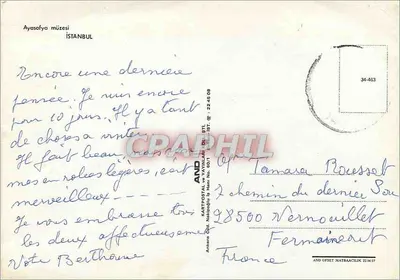 Ayasofya müzesi
İSTANBUL
Encore une dernière
pensée. Je suis encore
pour 10 jours. Il y a tant
de choses a visiter
Il fait beau, nous sommes
mes en robes légères, c'est
merveilleux
Je vous embrasse tous
les deux affectueusement
Votre Berthome
AND
KARTPOSTAL VE YAYINLARI
34-463
Tamara Rousset
2 chemin du dernier Sou
98500 Vernouillet
Fermaincourt
France
CRAPHIL
AND OFSET MATBAACILIK